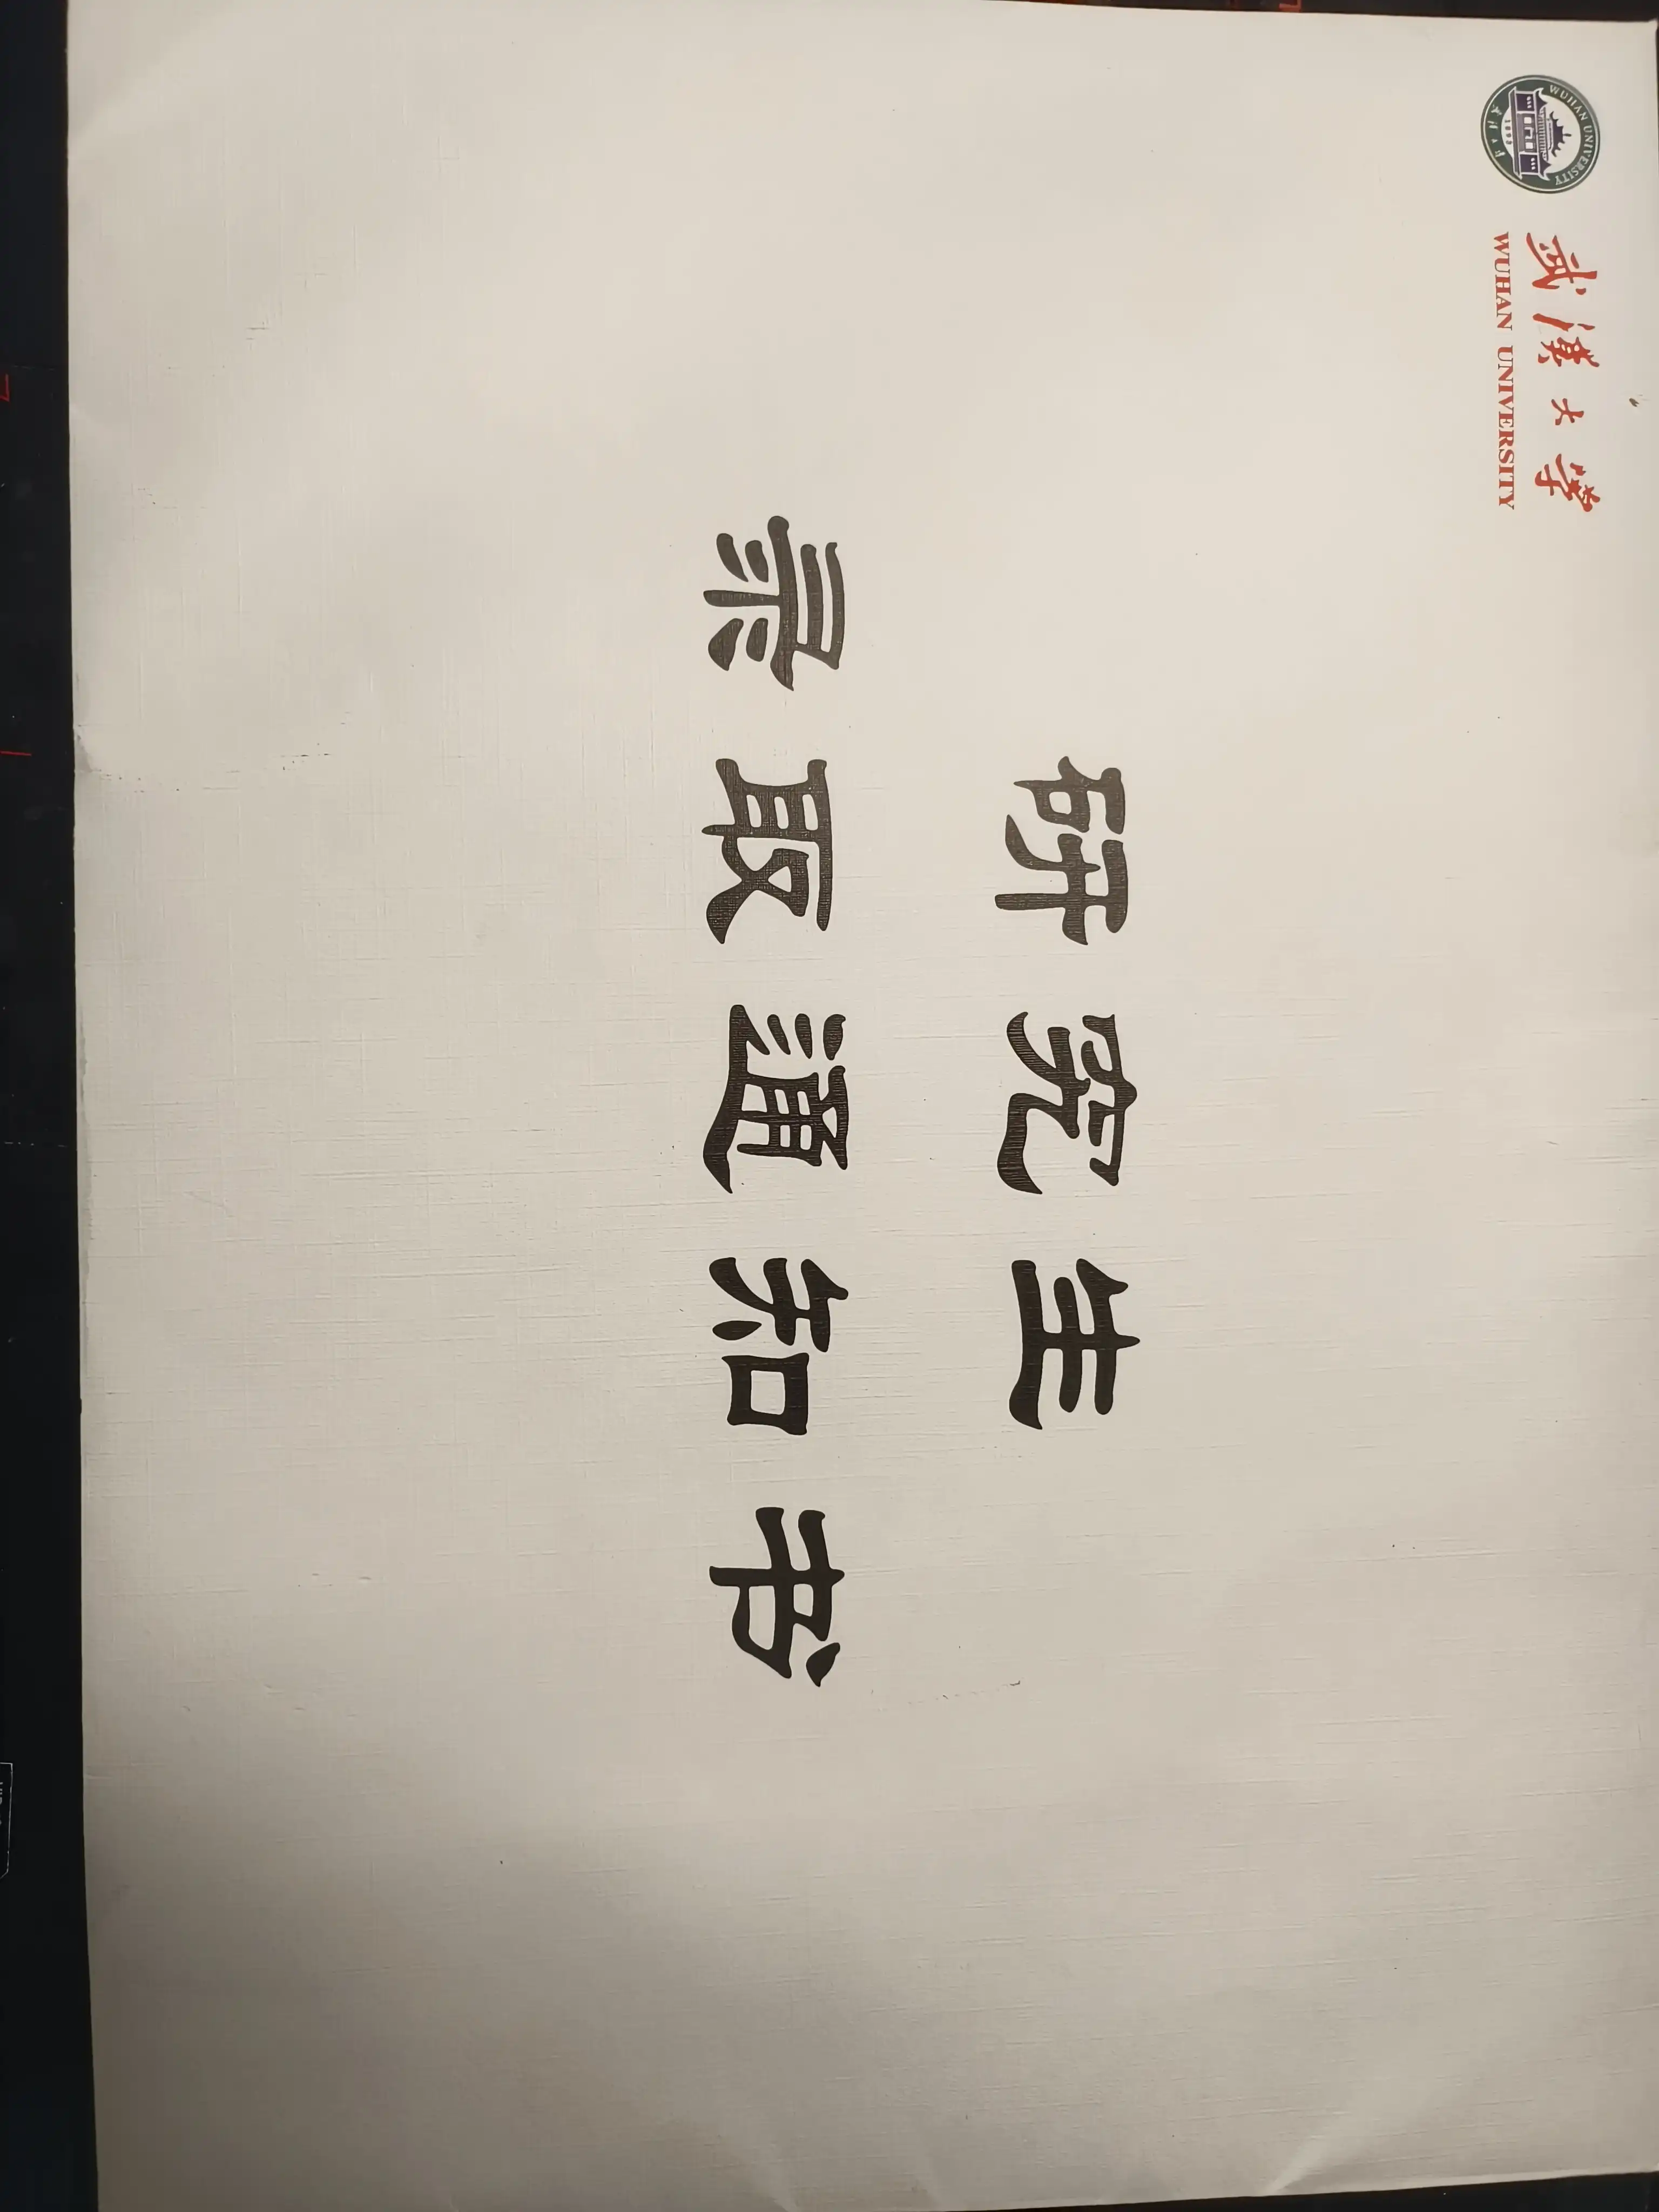 武汉大学
WUHAN UNIVERSITY
WUHAN UNIVERSITY
1893
研究生
录取通知书